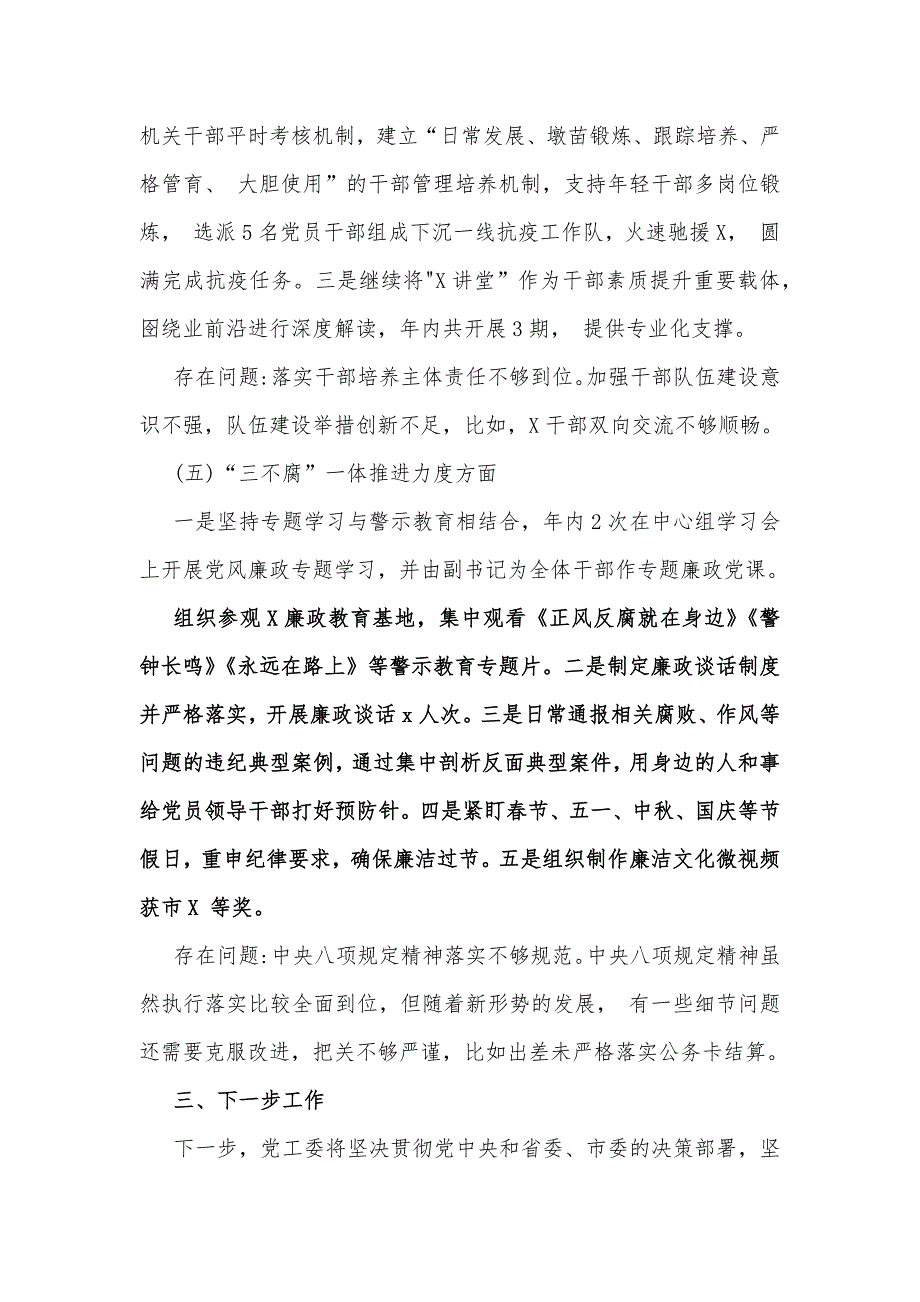 机关干部平时考核机制，建立“日常发展、墩苗锻炼、跟踪培养、严
格管育、 大胆使用”的干部管理培养机制，支持年轻干部多岗位锻
炼， 选派 5 名党员干部组成下沉一线抗疫工作队，火速驰援 X， 圆
满完成抗疫任务。三是继续将"X 讲堂”作为干部素质提升重要载体，
囹绕业前沿进行深度解读，年内共开展 3 期， 提供专业化支撑。
存在问题:落实干部培养主体责任不够到位。加强干部队伍建设意
识不强，队伍建设举措创新不足，比如，X 干部双向交流不够顺畅。
(五)“三不腐”一体推进力度方面
一是坚持专题学习与警示教育相结合，年内 2 次在中心组学习会
上开展党风廉政专题学习，并由副书记为全体干部作专题廉政党课。
组织参观 X 廉政教育基地，集中观看《正风反腐就在身边》《警
钟长鸣》《永远在路上》等警示教育专题片。二是制定廉政谈话制度
并严格落实，开展廉政谈话 x 人次。三是日常通报相关腐败、作风等
问题的违纪典型案例，通过集中剖析反面典型案件，用身边的人和事
给党员领导干部打好预防针。四是紧盯春节、五一、中秋、国庆等节
假日，重申纪律要求，确保廉洁过节。五是组织制作廉洁文化微视频
获市 X 等奖。
存在问题:中央八项规定精神落实不够规范。中央八项规定精神虽
然执行落实比较全面到位，但随着新形势的发展， 有一些细节问题
还需要克服改进，把关不够严谨，比如出差未严格落实公务卡结算。
三、下一步工作
下一步，党工委将坚决贯彻党中央和省委、市委的决策部署，坚